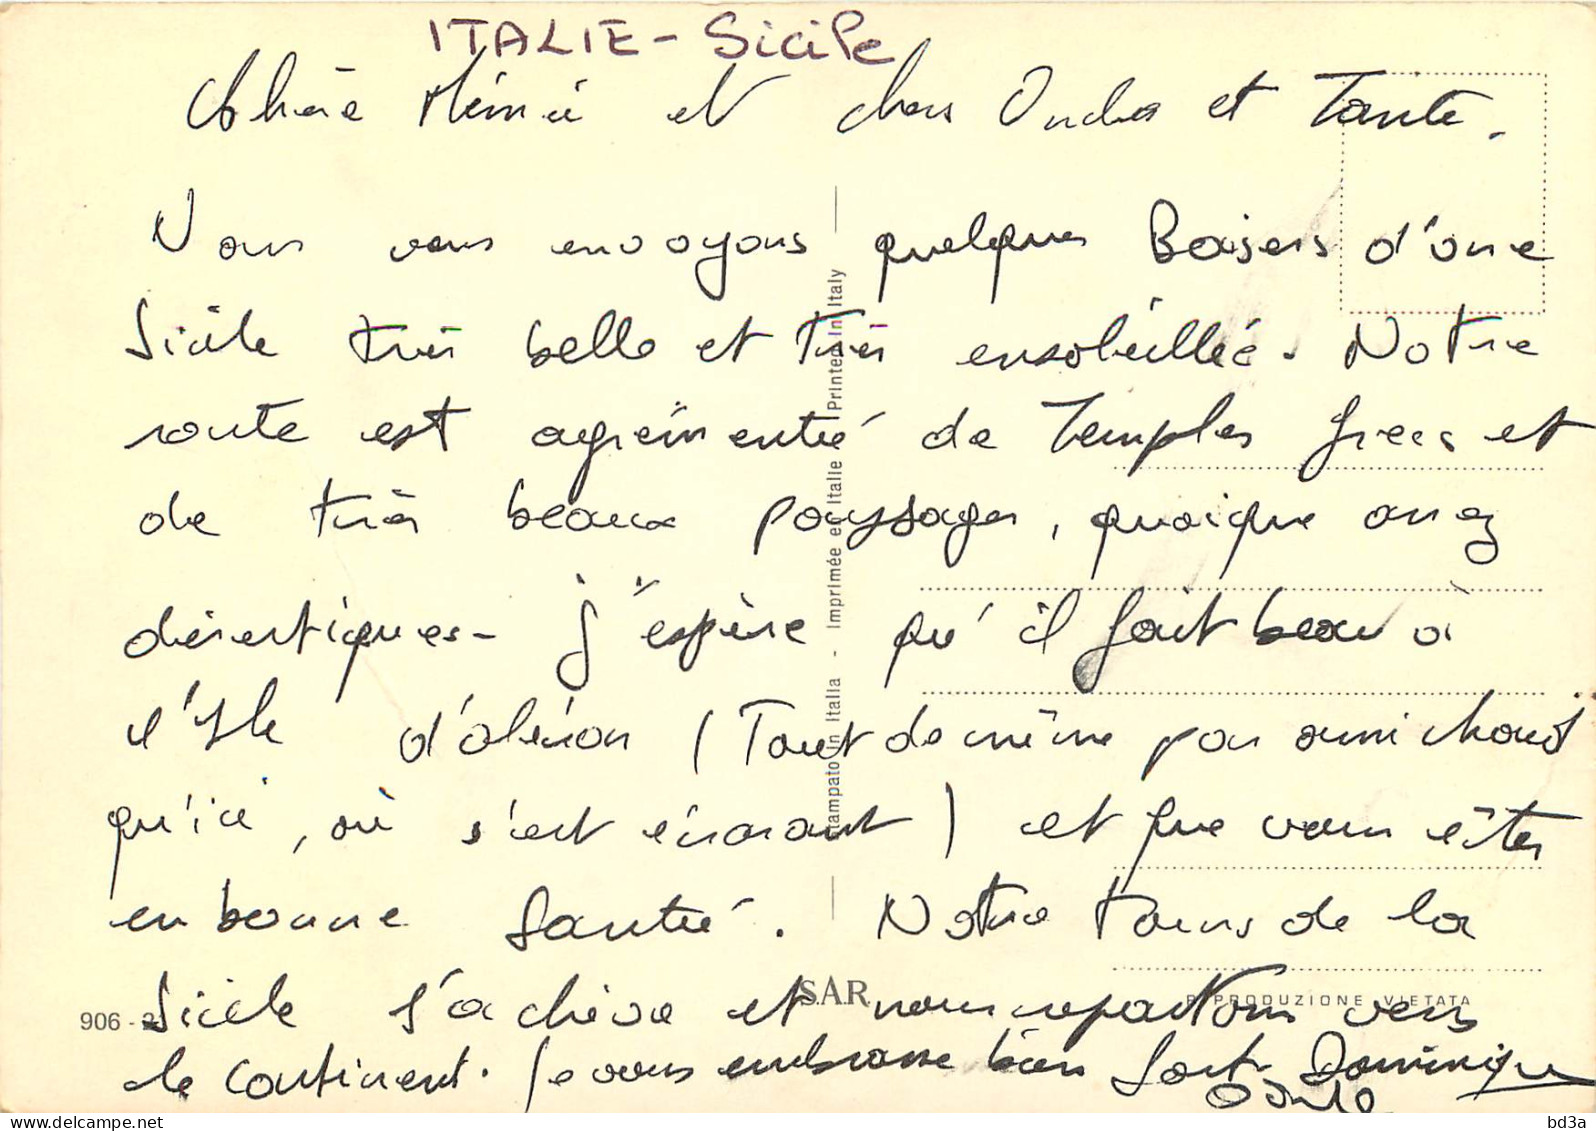 ITALIE - Sicile
Chère Mémé et chers Oncles et Tante.
Nous vous envoyons quelques Baisers d'une
Sicile très belle et très ensoleillée. Notre
route est agrémentée de Temples grecs et
de très beaux paysages, quoique assez
désertiques - J'espère qu'il fait beau à
l'Ile d'oléron (Tout de même pas aussi chaud
qu'ici, où s'est écrasant) et que vous êtes
en bonne santé. Notre tours de la
Sicile s'achève et nous repartons vers
le continent. Je vous embrasse bien fort. Dominique
Stampato in Italia - Imprimée en Italie - Printed in Italy
S.A.R.
RIPRODUZIONE VIETATA
906 -
bd3a